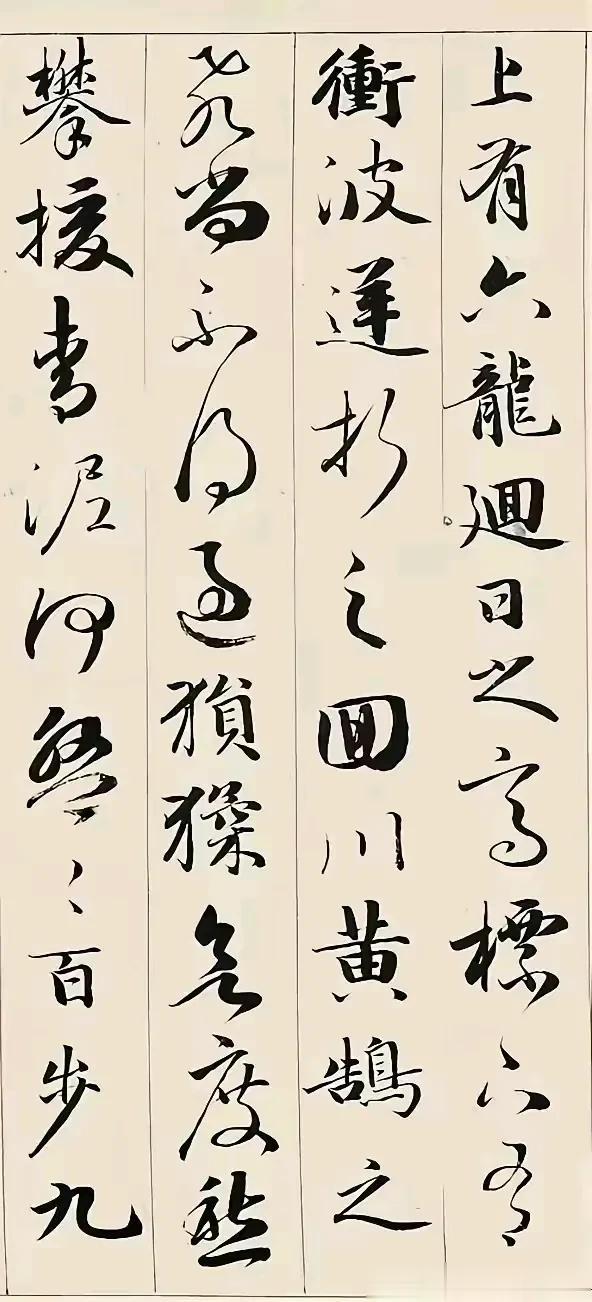 上有六龍廻日之高標下有
衝波逆折之囬川黄鵠之
飛尚不得過猿猱欲度愁
攀援青泥何盤〻百步九